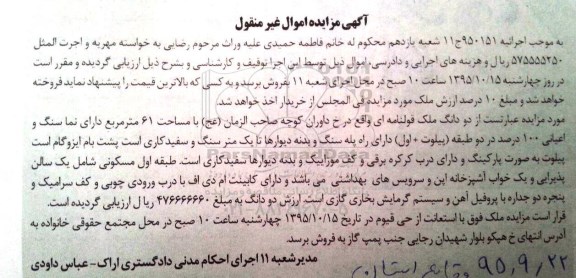 آگهی مزایده اموال غیر منقول
به موجب اجرائیه ۹۵۰۱۵۱ج۱۱ شعبه یازدهم محکوم له خانم فاطمه حمیدی علیه وراث مرحوم رضایی به خواسته مهریه و اجرت المثل
۵۷۵۵۵۵۲۵۰ ریال و هزینه های اجرایی و دادرسی، اموال ذیل توسط این اجرا توقیف و کارشناسی و بشرح ذیل ارزیابی گردیده و مقرر است
در روز چهارشنبه ۱۳۹۵/۱۰/۱۵ ساعت ۱۰ صبح در محل اجرای شعبه ۱۱ بفروش برسد و به کسی که بالاترین قیمت را پیشنهاد نماید فروخته
خواهد شد و مبلغ ۱۰ درصد ارزش ملک مورد مزایده فی المجلس از خریدار اخذ خواهد شد.
مورد مزایده عبارتست از دو دانگ ملک قولنامه ای واقع در خ داوران کوچه صاحب الزمان (عج) با مساحت ۶۱ مترمربع دارای نما سنگ و
اعیانی ۱۰۰ درصد در دو طبقه (پیلوت + اول) دارای راه پله سنگ و بدنه دیوارها تا یک متر سنگ و سفیدکاری است پشت بام ایزوگام است
پیلوت به صورت پارکینگ و دارای درب کرکره برقی و کف موزاییک و بدنه دیوارها سفیدکاری است. طبقه اول مسکونی شامل یک سالن
پذیرایی و یک خواب آشپزخانه اپن و سرویس های بهداشتی می باشد و دارای کابینت ام دی اف با درب ورودی چوبی و کف سرامیک و
پنجره دو جداره با پروفیل آهن و سیستم گرمایش بخاری گازی است. ارزش دو دانگ به مبلغ ۴۷۶۶۶۶۶۶۰ ریال ارزیابی گردیده است.
قرار است مزایده ملک فوق با استعانت از حی قیوم در تاریخ ۱۳۹۵/۱۰/۱۵ چهارشنبه ساعت ۱۰ صبح در محل مجتمع حقوقی خانواده به
آدرس انتهای خ هپکو بلوار شهیدان رجایی جنب پمپ گاز به فروش برسد.
مدیر شعبه ۱۱ اجرای احکام مدنی دادگستری اراک - عباس داودی
۹۵,۹,۲۲